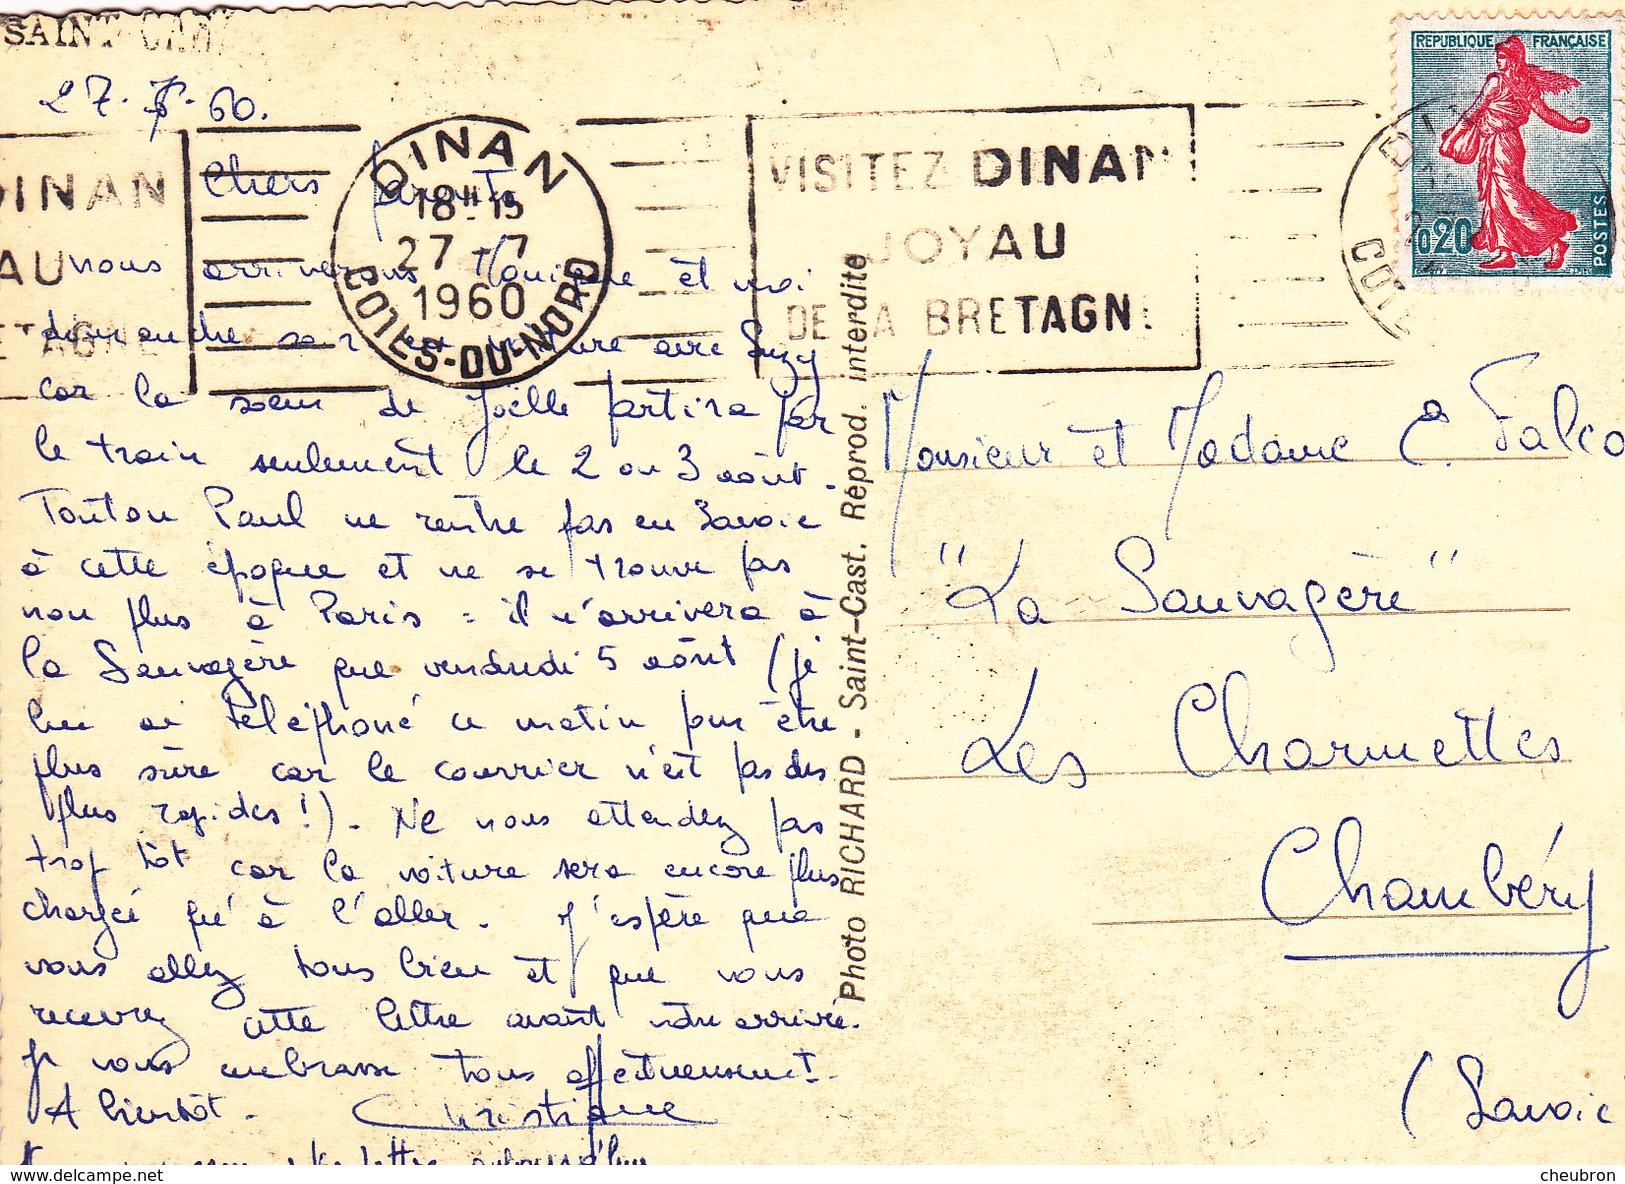 SAINT
27.7.60.
DINAN
18H15
27-7
1960
COTES-DU-NORD
VISITEZ DINAN
JOYAU
DE LA BRETAGNE
REPUBLIQUE FRANÇAISE
0,20
POSTES
Chers parents
nous arriverons Monique et moi
dimanche soir en voiture avec Suzy
car la soeur de Joëlle partira par
le train seulement le 2 ou 3 août.
Tonton Paul ne rentre pas en Savoie
à cette époque et ne se trouve pas
non plus à Paris = il n'arrivera à
la Sauvagère que vendredi 5 août (je
lui ai téléphoné ce matin pour être
plus sûre car le courrier n'est pas des
plus rapides!). Ne nous attendez pas
trop tôt car la voiture sera encore plus
chargée qu'à l'aller. J'espère que
vous allez tous bien et que vous
recevrez cette lettre avant notre arrivée.
Je vous embrasse tous affectueusement.
A bientôt. Christiane
lettre aujourd'hui
Photo RICHARD - Saint-Cast. Reprod. interdite
Monsieur et Madame E. Falco
"La Sauvagère"
Les Charmettes
Chambéry
(Savoie
DINAN
AU
cheubron
www.delcampe.net